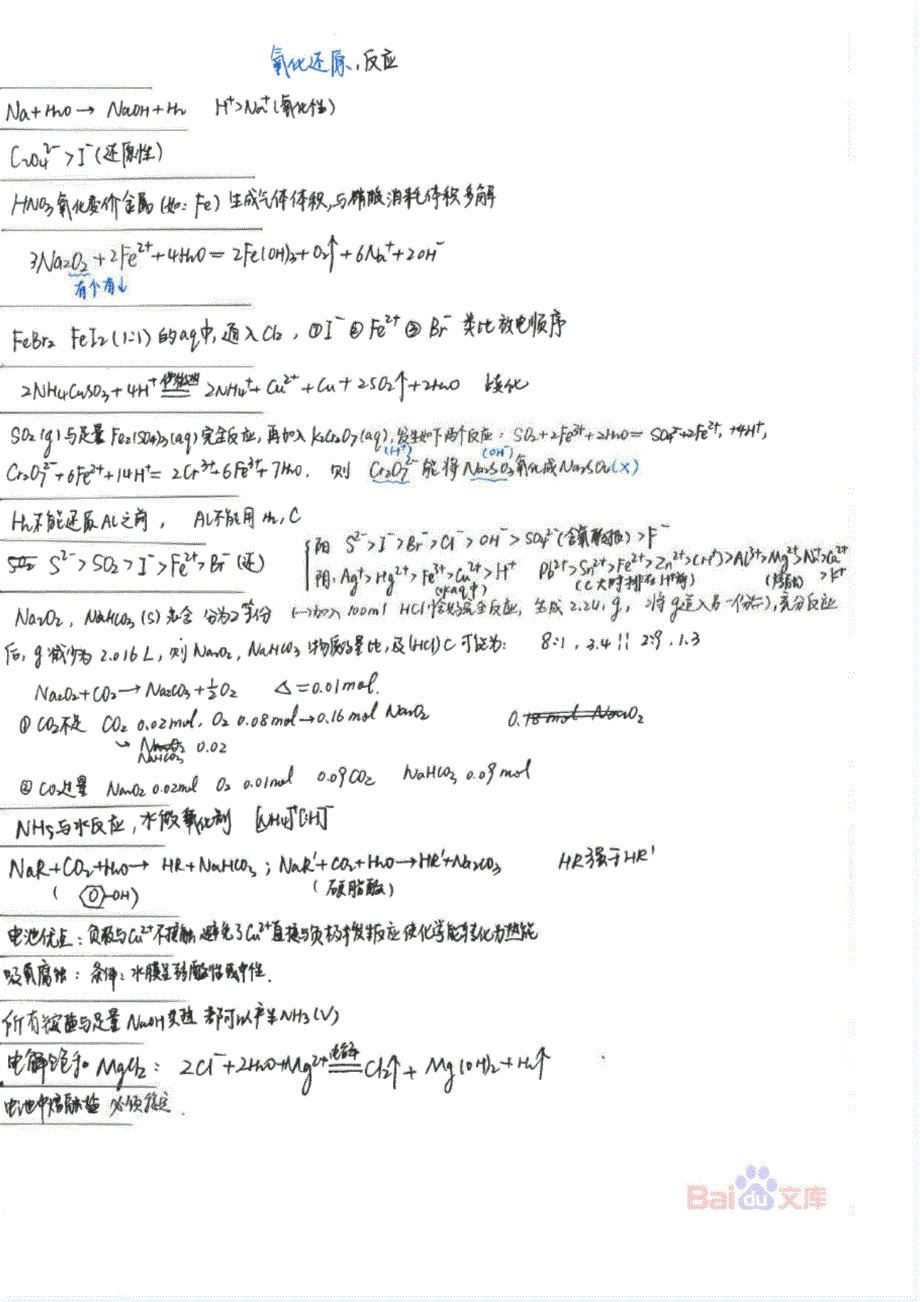 氧化还原反应
Na+H₂O → NaOH+H₂ H⁺>Na⁺(氧化性)
C₂O₄²⁻>I⁻(还原性)
HNO₃氧化变价金属(如:Fe)生成气体体积,与硝酸消耗体积多解
3Na₂O₂+2Fe²⁺+4H₂O=2Fe(OH)₃+O₂↑+6Na⁺+2OH⁻
有个有↓
FeBr₂ FeI₂(1:1)的aq中,通入Cl₂,①I⁻②Fe²⁺③Br⁻类比放电顺序
2NH₄CuSO₃+4H⁺═2NH₄⁺+Cu²⁺+Cu+2SO₂↑+2H₂O 歧化
SO₂(g)与足量Fe₂(SO₄)₃(aq)完全反应,再加入K₂Cr₂O₇(aq),发生如下两个反应:SO₂+2Fe³⁺+2H₂O=SO₄²⁻+2Fe²⁺+4H⁺,
(H⁺) (OH⁻)
Cr₂O₇²⁻+6Fe²⁺+14H⁺=2Cr³⁺+6Fe³⁺+7H₂O. 则 Cr₂O₇²⁻能将Na₂SO₃氧化成Na₂SO₄(×)
H₂不能还原Al之前, Al不能用H₂,C
SO₂ S²⁻>SO₂>I⁻>Fe²⁺>Br⁻(还)
阴 S²⁻>I⁻>Br⁻>Cl⁻>OH⁻>SO₄²⁻(含氧酸根)>F⁻
阳:Ag⁺>Hg²⁺>Fe³⁺>Cu²⁺>H⁺ Pb²⁺>Sn²⁺>Fe²⁺>Zn²⁺>(H⁺)>Al³⁺>Mg²⁺>Na⁺>Ca²⁺>K⁺
(水aq中) (C大时排在H前) (熔融)
Na₂O₂,NaHCO₃(s) 混合 分为2等份 (一)加入100ml HCl恰好完全反应,生成2.24L g, 将g通入另一份(二),充分反应
后,g减少为2.016L,则Na₂O₂,NaHCO₃物质的量比,及(HCl)C可能为: 8:1,3.4 || 2:9,1.3
Na₂O₂+CO₂→Na₂CO₃+½O₂ △=0.01mol.
①CO₂不足 CO₂ 0.02mol, O₂ 0.08mol→0.16mol Na₂O₂ 0.18mol Na₂O₂
Na₂O₂ 0.02
NaHCO₃
②CO₂过量 Na₂O₂ 0.02mol O₂ 0.01mol 0.09CO₂ NaHCO₃ 0.09mol
NH₅与水反应,水做氧化剂 [NH₄]⁺[:H]⁻
NaR+CO₂+H₂O→HR+NaHCO₃;NaR'+CO₂+H₂O→HR'+Na₂CO₃ HR强于HR'
(-OH) (硬脂酸)
电池优点:负极与Cu²⁺不接触,避免了Cu²⁺直接与负极发生反应使化学能转化为热能
吸氧腐蚀:条件:水膜呈弱酸性或中性.
所有铵盐与足量NaOH共热都可以产生NH₃(√)
电解饱和MgCl₂: 2Cl⁻+2H₂O+Mg²⁺═电解═Cl₂↑+Mg(OH)₂+H₂↑
电池中熔融盐必须稳定.
Bai du 文库